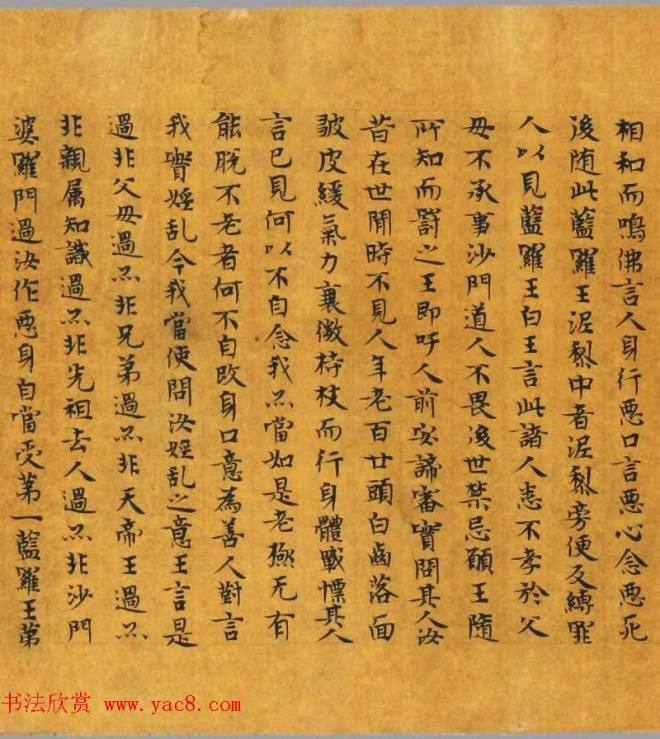 相和而鳴佛言人身行惡口言惡心念惡死
後随此藍羅王泥𥟖中者泥𥟖旁便反縛罪
人以見藍羅王白王言此諸人恚不孝於父
母不承事沙門道人不畏後世禁忌願王隨
所知而罰之王即呼人前安諦審實問其人汝
昔在世間時不見人年老百廿頭白齒落面
皺皮緩氣力襄微持杖而行身體戰慓其人
言已見何以不自念我亦當如是老極无有
能脫不老者何不自改身口意為善人對言
我實婬乱今我當使問汝婬乱之意王言是
過非父母過亦非兄弟過亦非天帝王過亦
非親属知識過亦非先祖去人過亦非沙門
婆羅門過汝作惡身自當受第一藍羅王第
书法欣赏 www.yac8.com